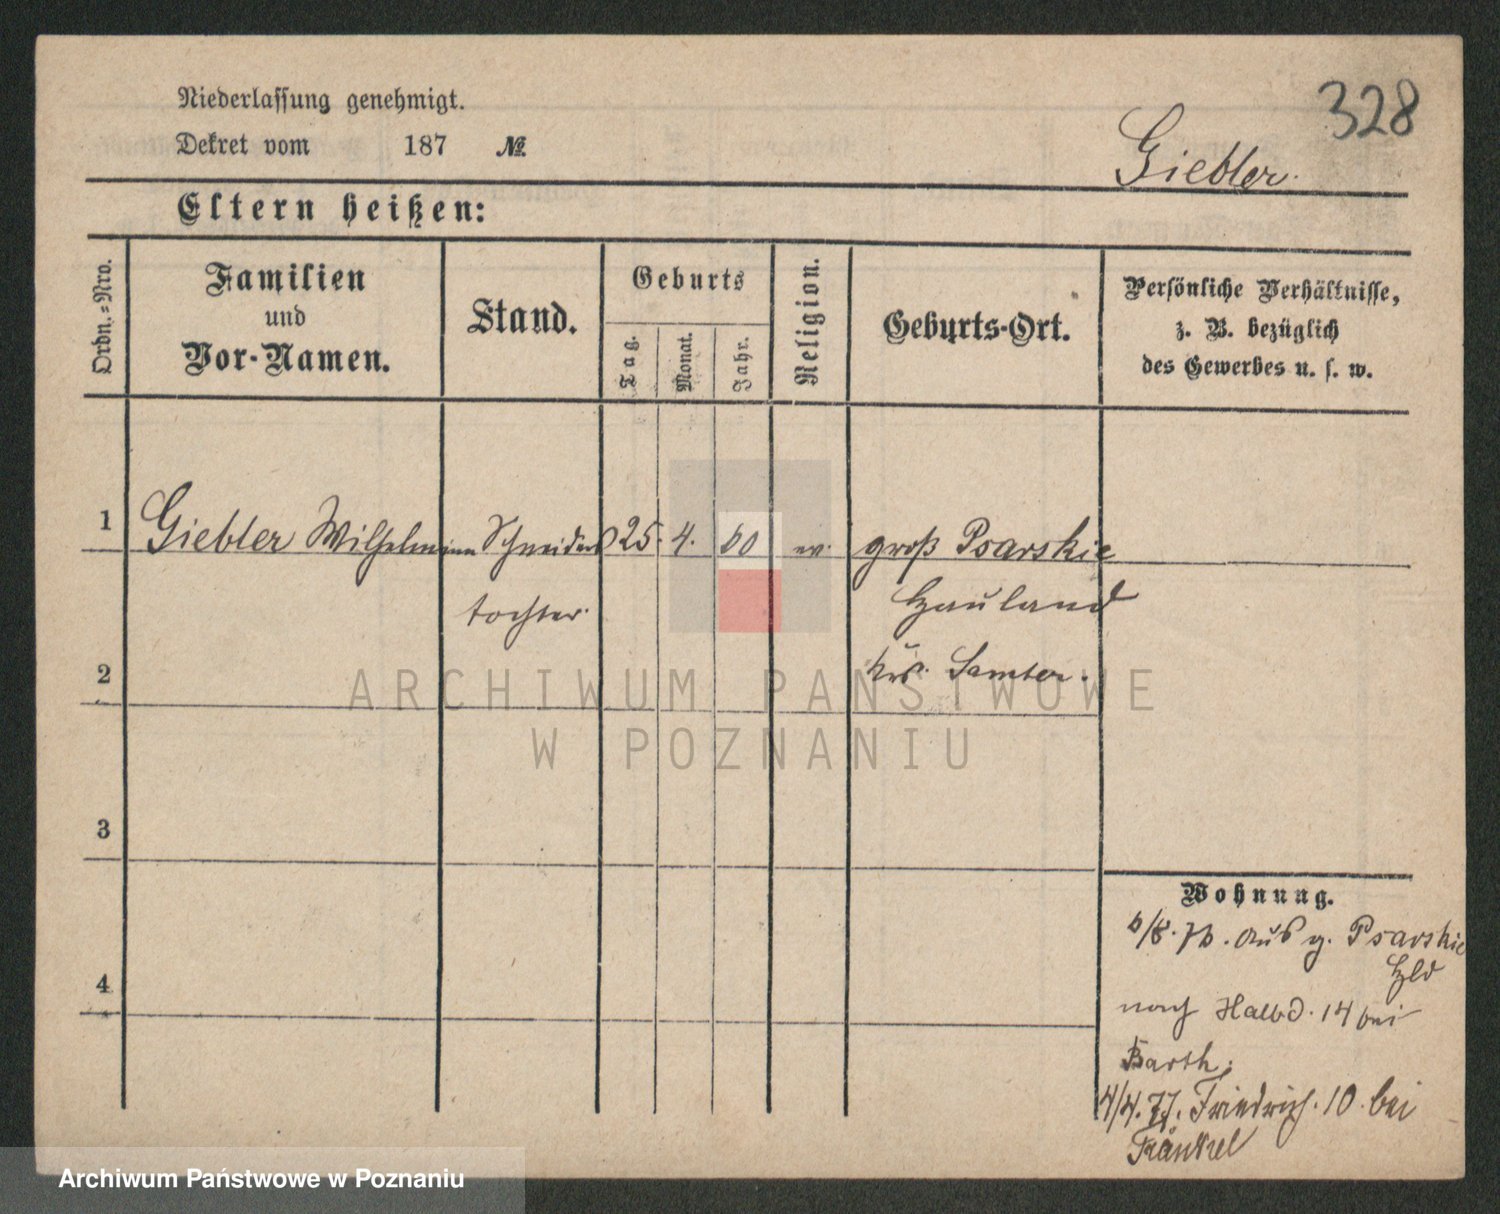 328
Niederlassung genehmigt.
Dekret vom 187 №
Giebler.
Eltern heißen:
Ordn.=Nro.
Familien
und
Vor-Namen.
Stand.
Geburts
Tag.
Monat.
Jahr.
Religion.
Geburts-Ort.
Persönliche Verhältnisse,
z. B. bezüglich
des Gewerbes u. s. w.
1 Giebler Wilhelmine Schneiders 25. 4. 60 ev. groß Psarskie
tochter Hauland
2 Krs. Samter.
3
Wohnung.
6/8. 76. aus g. Psarskie
Hld
4
nach Halbd. 14 bei
Barth.
4/4. 77. Friedrich. 10 bei
Fränkel
ARCHIWUM PAŃSTWOWE
W POZNANIU
Archiwum Państwowe w Poznaniu